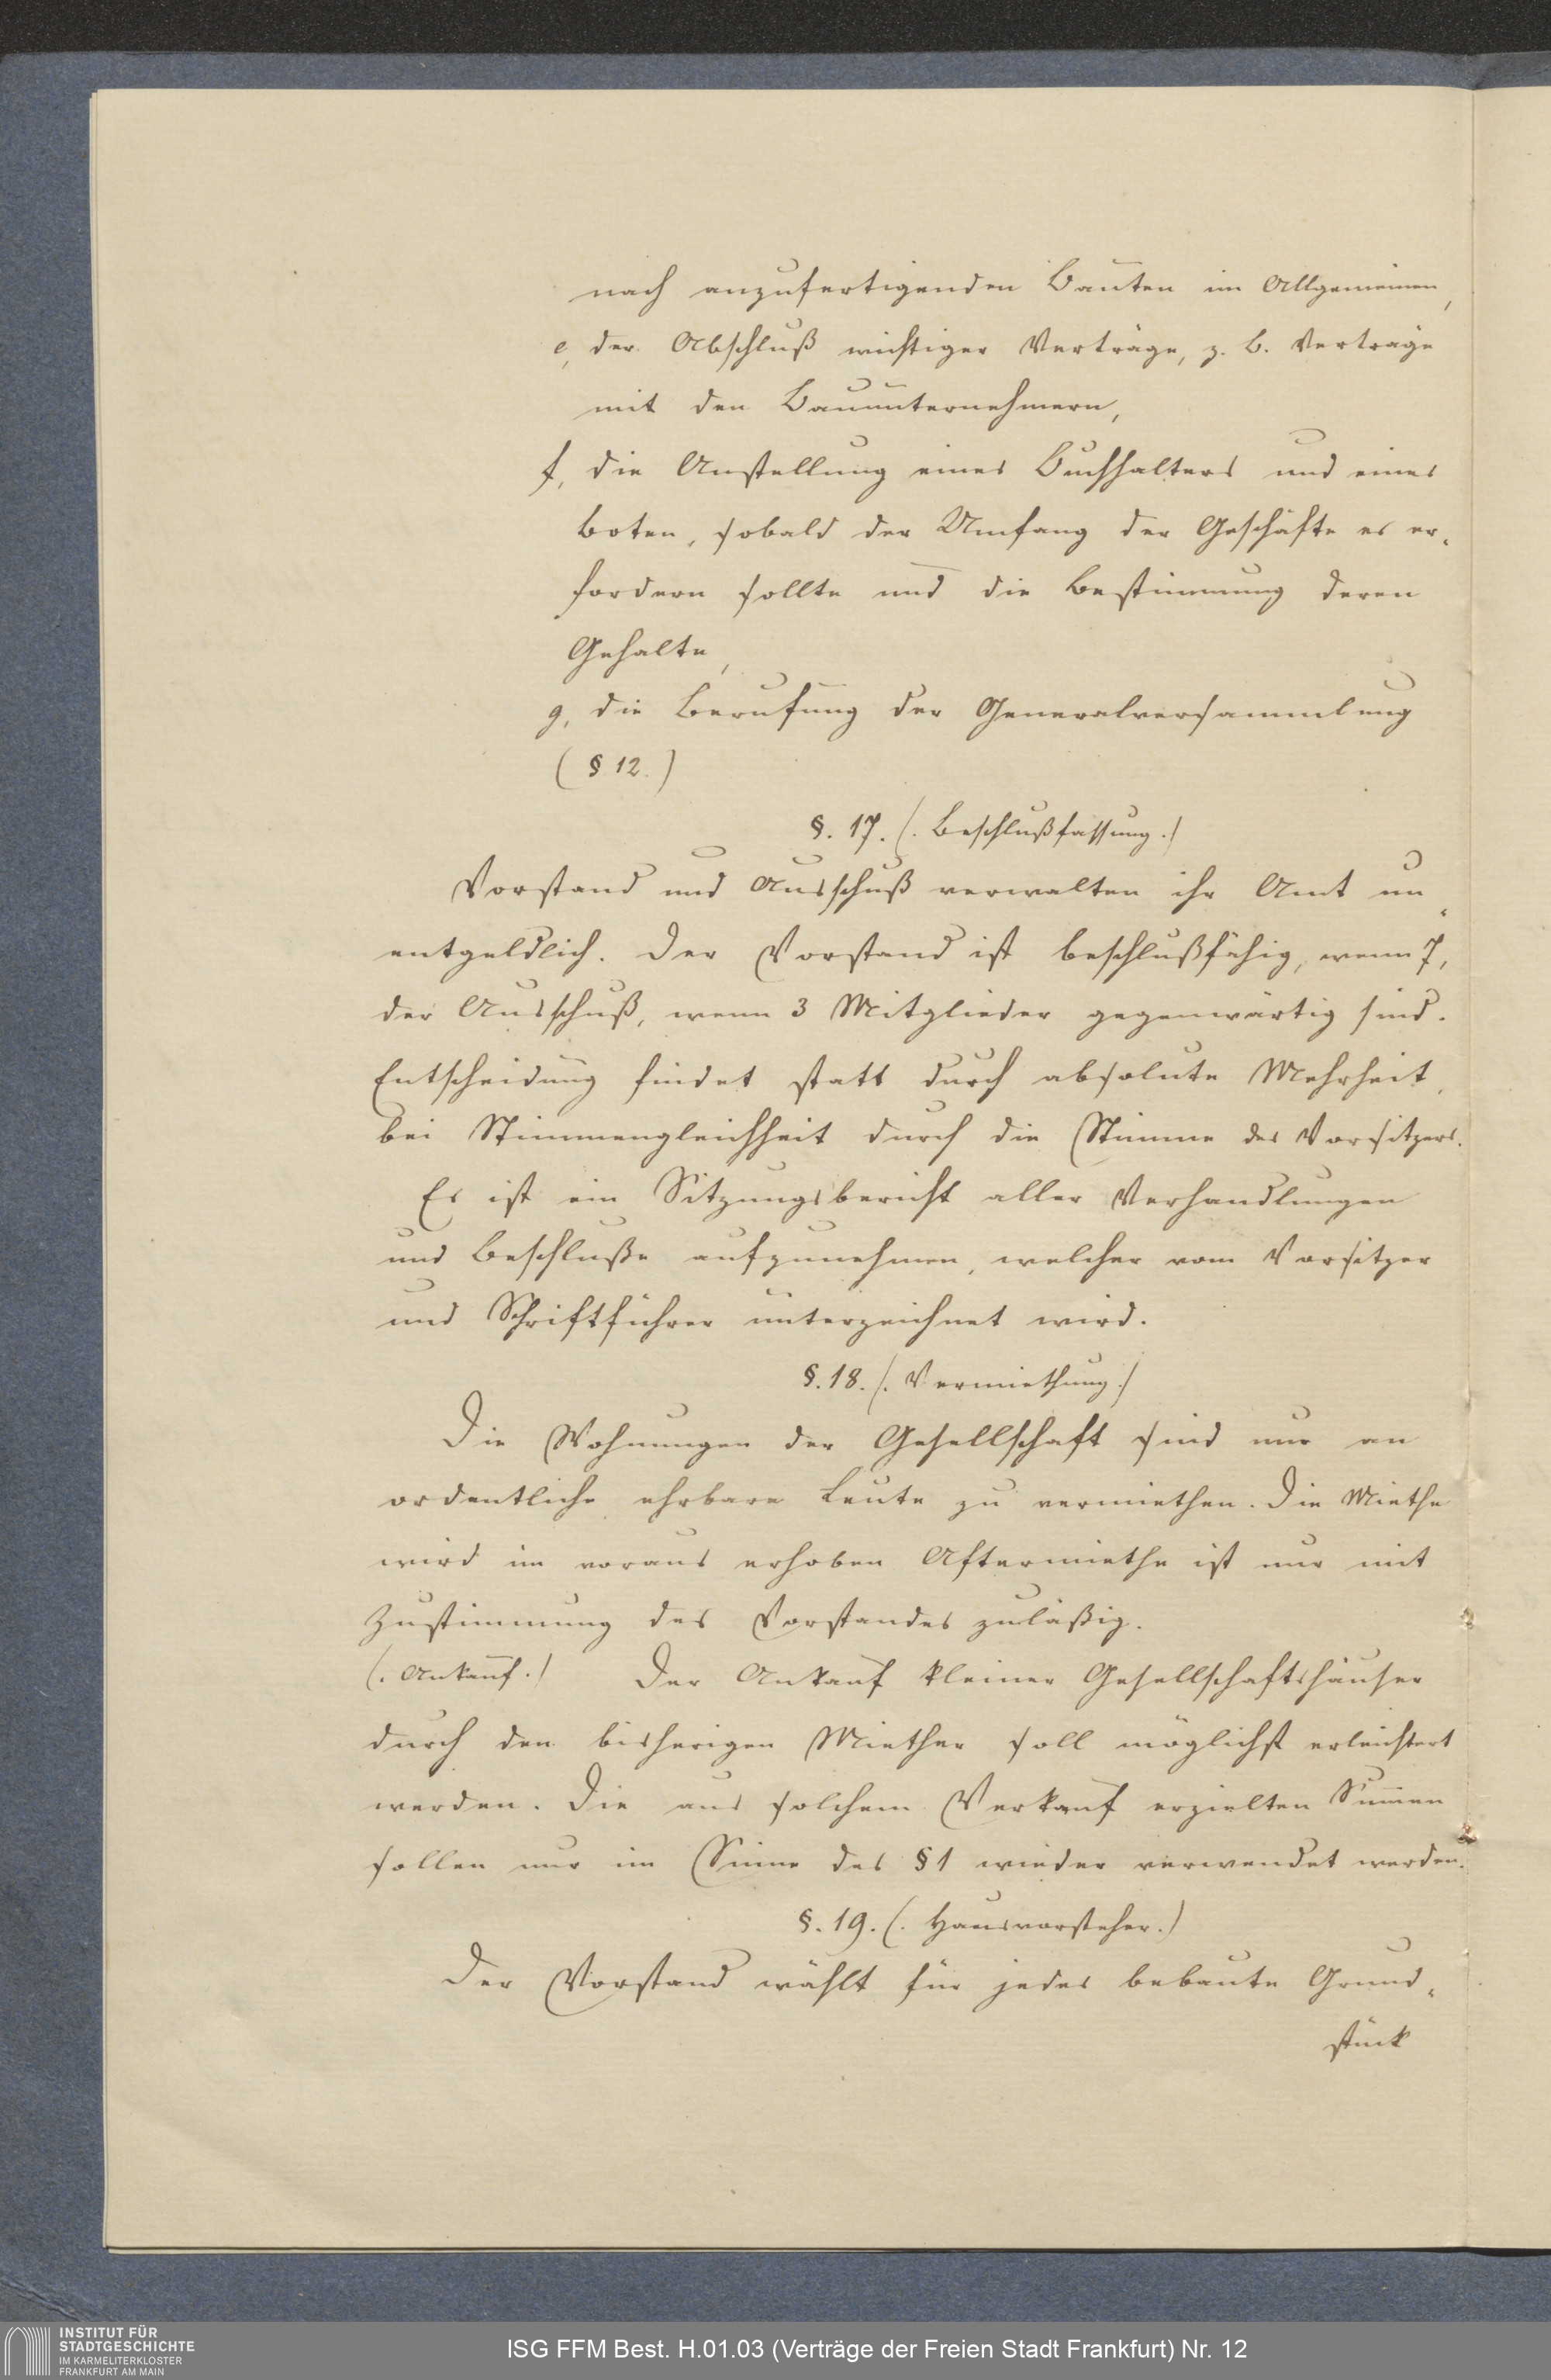 nach anzufertigenden Bauten im Allgemeinen,
e, der Abschluß wichtiger Verträge, z. B. Verträge
mit den Bauunternehmern,
f, die Anstellung eines Buchhalters und eines
Boten, sobald der Umfang der Geschäfte es er-
fordern sollte und die Bestimmung deren
Gehalte,
g, die Berufung der Generalversammlung
(§ 12.)
§. 17. (. Beschlußfassung .)
Vorstand und Ausschuß verwalten ihr Amt un-
entgeldlich. Der Vorstand ist beschlußfähig, wenn 7,
der Ausschuß, wenn 3 Mitglieder gegenwärtig sind.
Entscheidung findet statt durch absolute Mehrheit,
bei Stimmengleichheit durch die Stimme des Vorsitzers.
Es ist ein Sitzungsbericht aller Verhandlungen
und Beschluße aufzunehmen, welcher vom Vorsitzer
und Schriftführer unterzeichnet wird.
§. 18. (. Vermiethung .)
Die Wohnungen der Gesellschaft sind nur an
ordentliche ehrbare Leute zu vermiethen. Die Miethe
wird im voraus erhoben Aftermiethe ist nur mit
Zustimmung des Vorstandes zuläßig.
(. Ankauf .) Der Ankauf kleiner Gesellschaftshäuser
durch den bisherigen Miether soll möglichst erleichtert
werden. Die aus solchem Verkauf erzielten Sum̄en
sollen nur im Sinne des § 1 wieder verwendet werden.
§. 19. (. Hausvorsteher .)
Der Vorstand wählt für jedes bebaute Grund-
stück
INSTITUT FÜR
STADTGESCHICHTE
IM KARMELITERKLOSTER
FRANKFURT AM MAIN
ISG FFM Best. H.01.03 (Verträge der Freien Stadt Frankfurt) Nr. 12